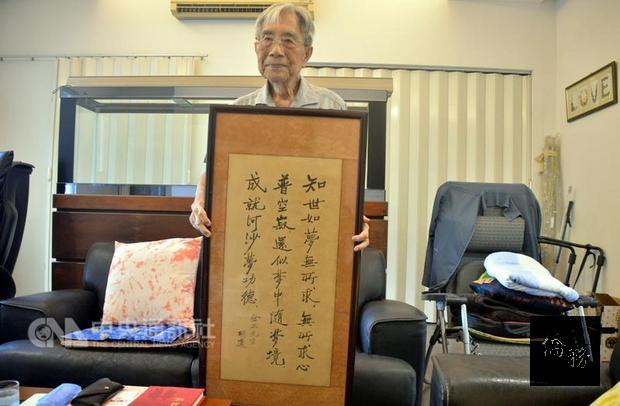 知世如夢無所求、無所求心
普空寂還似夢中隨夢境
成就河沙夢功德
LOVE
CNA 中央通訊社
僑務